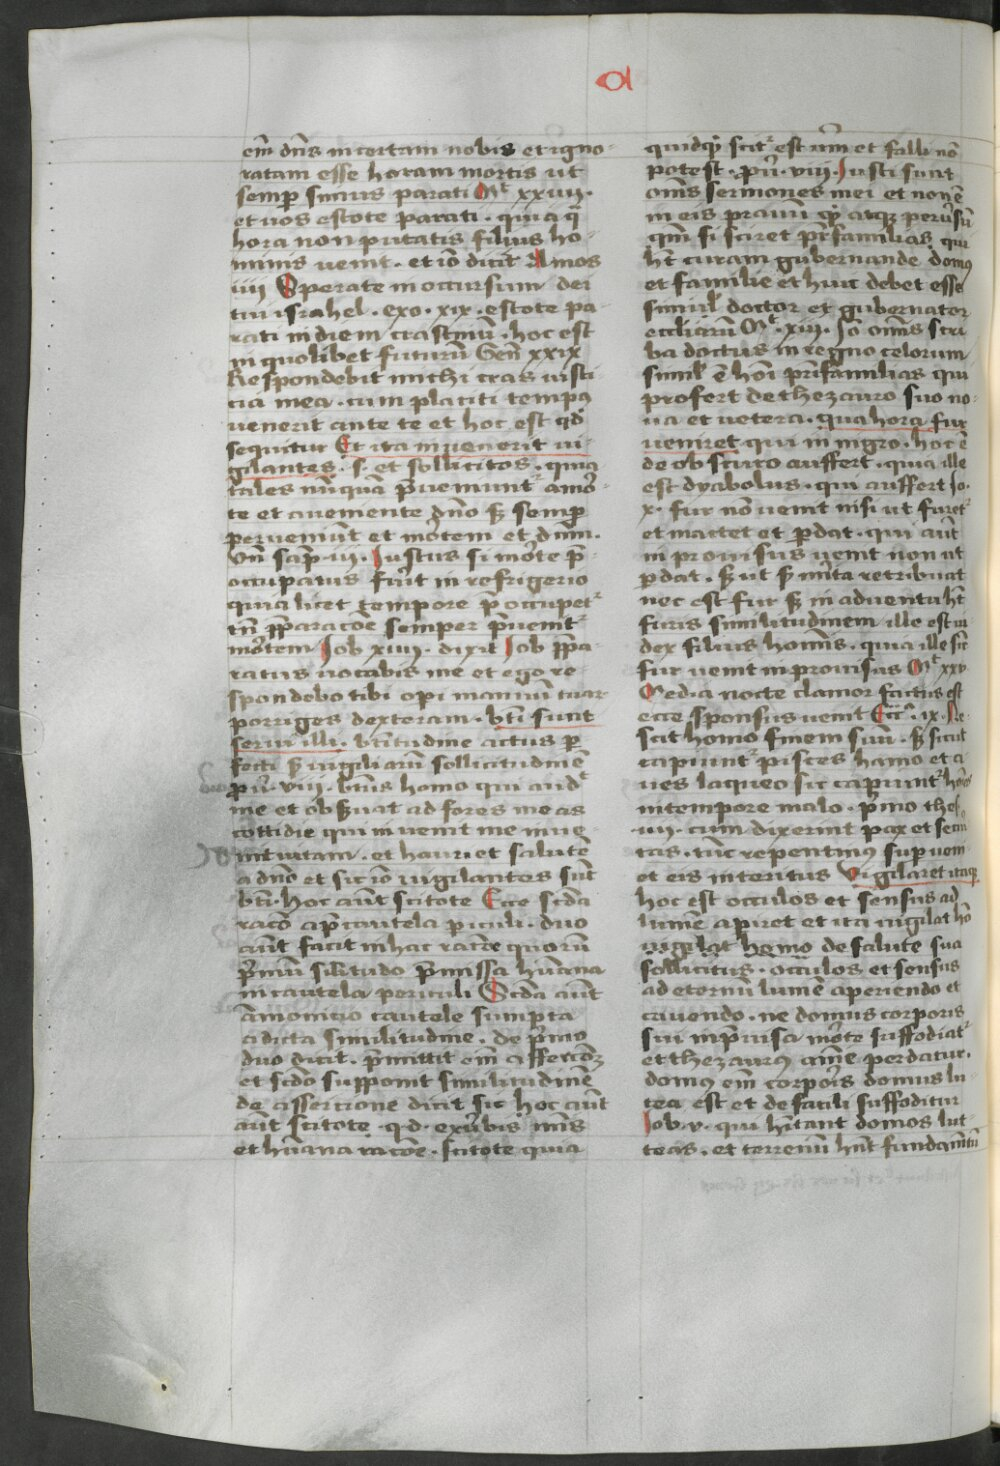 a
em̄ dn̄s incertam nobis et igno-
ratam esse horam mortis ut
semp̄ simus parati Mt xxiiii.
et uos estote parati. quia q̄
hora non putatis filius ho-
minis uenit. et iō dicit Amos
iiii Preparate in occursum dei
tui israhel. exo. xix. estote pa-
rati in diem crastinū. hoc est
in quolibet futurū Gen̄ xxix
Respondebit michi cras iusti
cia mea. cum placiti tempꝰ
uenerit ante te et hoc est qd̄
sequitur Et ita inuenerit ui-
gilantes. s. et sollicitos. quia
tales nūquā p̄ueniuntʳ a mor̄
te et aueniente dn̄o sꝫ semp̄
perueniūt et mor̄tem et dn̄m.
Vn̄ sap̄. iiii. Iustus si mor̄te p̄-
occupatus fuīt in refrigerio
quia licet tempore p̄occupetʳ
tn̄ p̄paracōe semper p̄uenitʳ
mor̄tem Iob xiiii. dixit Iob p̄pa-
ratus uocabis me et ego re-
spondebo tibi opi manuū tuar
porriges dexteram. bt̄i sunt
serui illi. bt̄itudine actus p̄
fecti sꝫ uigiliarū sollicitudinē
ꝓu̅. viii. bt̄us homo qui audt
me et obs̄uat ad fores meas
cottidie qui inuenit me inue-
nit uitam. et hauriet salutē
a dn̄o et sic iō uigilantes sūt
bt̄i. hoc aūt scitote Ecce sc̄da
racō ap̄ cautela piculi. duo
aūt facit in hac racōe quorū
p̄mū silitudo p̄missa hūana
in cautela periculi Sc̄da aūt
āmonicio cautele sumpta
a dicta similitudine. de p̄mo
duo dicit. p̄mittit em̄ assercōꝫ
et sc̄do supponit similitudinē
de assercione dicit sic hoc aūt
aūt scitote. q.d. ex ūbis meīs
et hūana racōe. scitote quia
quidqꝫ scitʳ est ūm et falli nō
potest. ꝓu̅. viii. Iusti sunt
om̄s sermones mei et non ē
in eis prauū qꝫ atqꝫ peruīsū
qm̄ si sciret pr̄familias qui
ht̄ curam gubernande domꝰ
et familie et huic debet esse
simil̄ doctor et gubernator
eccliarū Mt. xiii. Iō om̄s scri
ba doctus in regno celorum
simil̄ ē hoī pr̄familias qui
profert de thezauro suo no-
ua et uetera. qua hora fur
ueniret qui in nigro. hoc ē
de obscuro auffert. quia ille
est dyabolus. qui auffert Io.
x. fur nō uenit nisi ut furetʳ
et mactet et p̄dat. qui aūt
in prouisus uenit non ut
p̄dat. sꝫ ut ꝑ mīta retribuat
nec est fur sꝫ in aduentu ht̄
furis similitudinem ille est iu-
dex filius homīs. quia ille sic̄
fur uenit inprouisus Mt xxv
Media nocte clamor factus est
ecce sponsus uenit Ecc̄. ix. Ne-
scit homo finem suū. sꝫ sicut
capiuntʳ pisces hamo et a
ues laqueo sic capiuntʳ hoīes
in tempore malo. p̄mo thes̄
iiii. cum dixerint pax et secur̄i
tas. tūc repentinꝰ sup̄ueni
et eis interitus Vigilaret itaqꝫ
hoc est occulos et sensus ad
lumē apiret et ita uigilat hō
uigilat homo de salute sua
sollicitus. occulos et sensus
ad eternū lumē aperiendo et
cauendo. ne domus corporis
sui inp̄uisa mor̄te suffodiatʳ
et thezaurꝰ aīme perdatur.
domꝰ em̄ corpor̄is domus lu-
tea est et de facili suffoditur
Iob. v. qui hītant domos lut-
teas. et terrenū hn̄t fundamētū